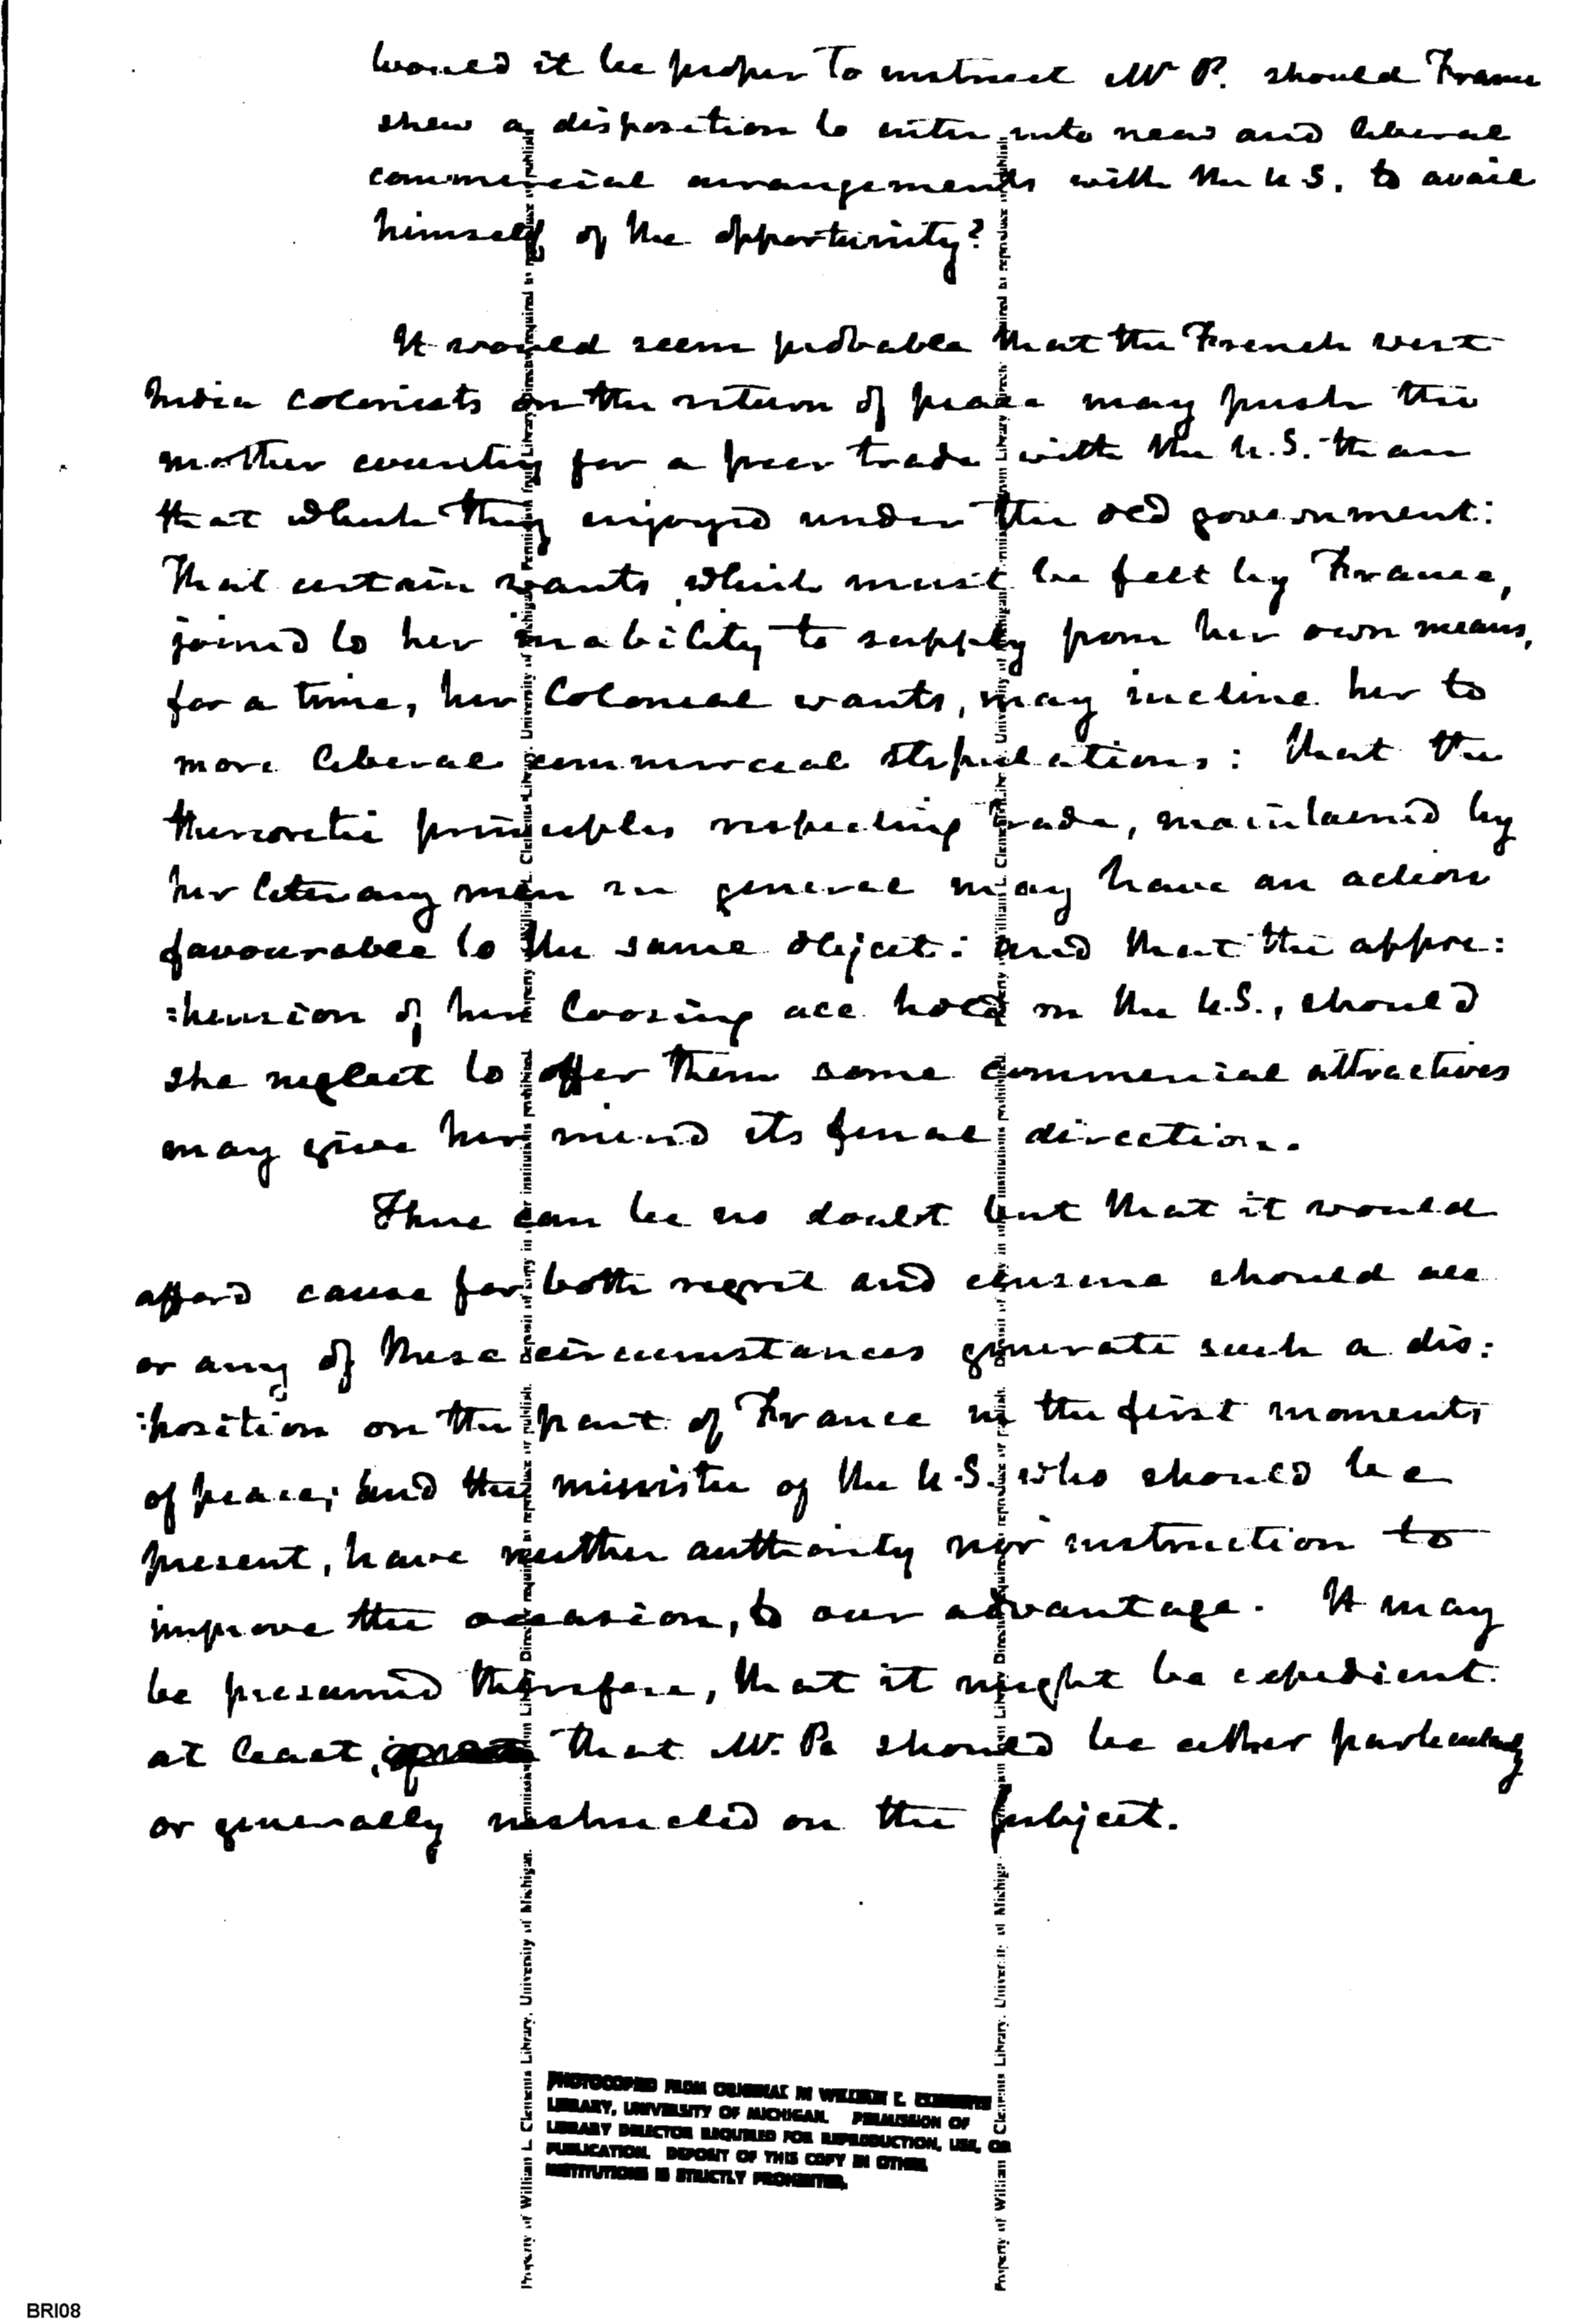 would it be proper to instruct Mr P. should France
shew a disposition to enter into new and liberal
commercial arrangements with the U S. to avail
himself of the opportunity?
It would seem probable that the French west
India colonists on the return of peace may push the
mother country for a freer trade with the U.S. than
that which they enjoyed under the old government:
That certain wants which must be felt by France,
joined to her inability to supply from her own means,
for a time, her Colonial wants, may incline her to
more liberal commercial stipulations: that the
theoretic principles respecting trade, maintained by
her literary men in general may have an action
favourable to the same object: and that the appre:
:hension of her loosing all hold on the U.S., should
she neglect to offer them some commercial attractives
may give her mind its final direction.
There can be no doubt but that it would
afford cause for both regret and censure should all
or any of these circumstances generate such a dis:
:position on the part of France in the first moments
of peace; and the minister of the U.S. who should be
present, have neither authority nor instruction to
improve the occasion, to our advantage. It may
be presumed therefore, that it might be expedient
at least, that Mr. P. should be either particularly
or generally instructed on the subject.
PHOTOCOPIED FROM ORIGINAL IN WILLIAM L. CLEMENTS
LIBRARY, UNIVERSITY OF MICHIGAN. PERMISSION OF
LIBRARY DIRECTOR REQUIRED FOR REPRODUCTION, USE, OR
PUBLICATION. DEPOSIT OF THIS COPY IN OTHER
INSTITUTIONS IS STRICTLY PROHIBITED.
BRI08